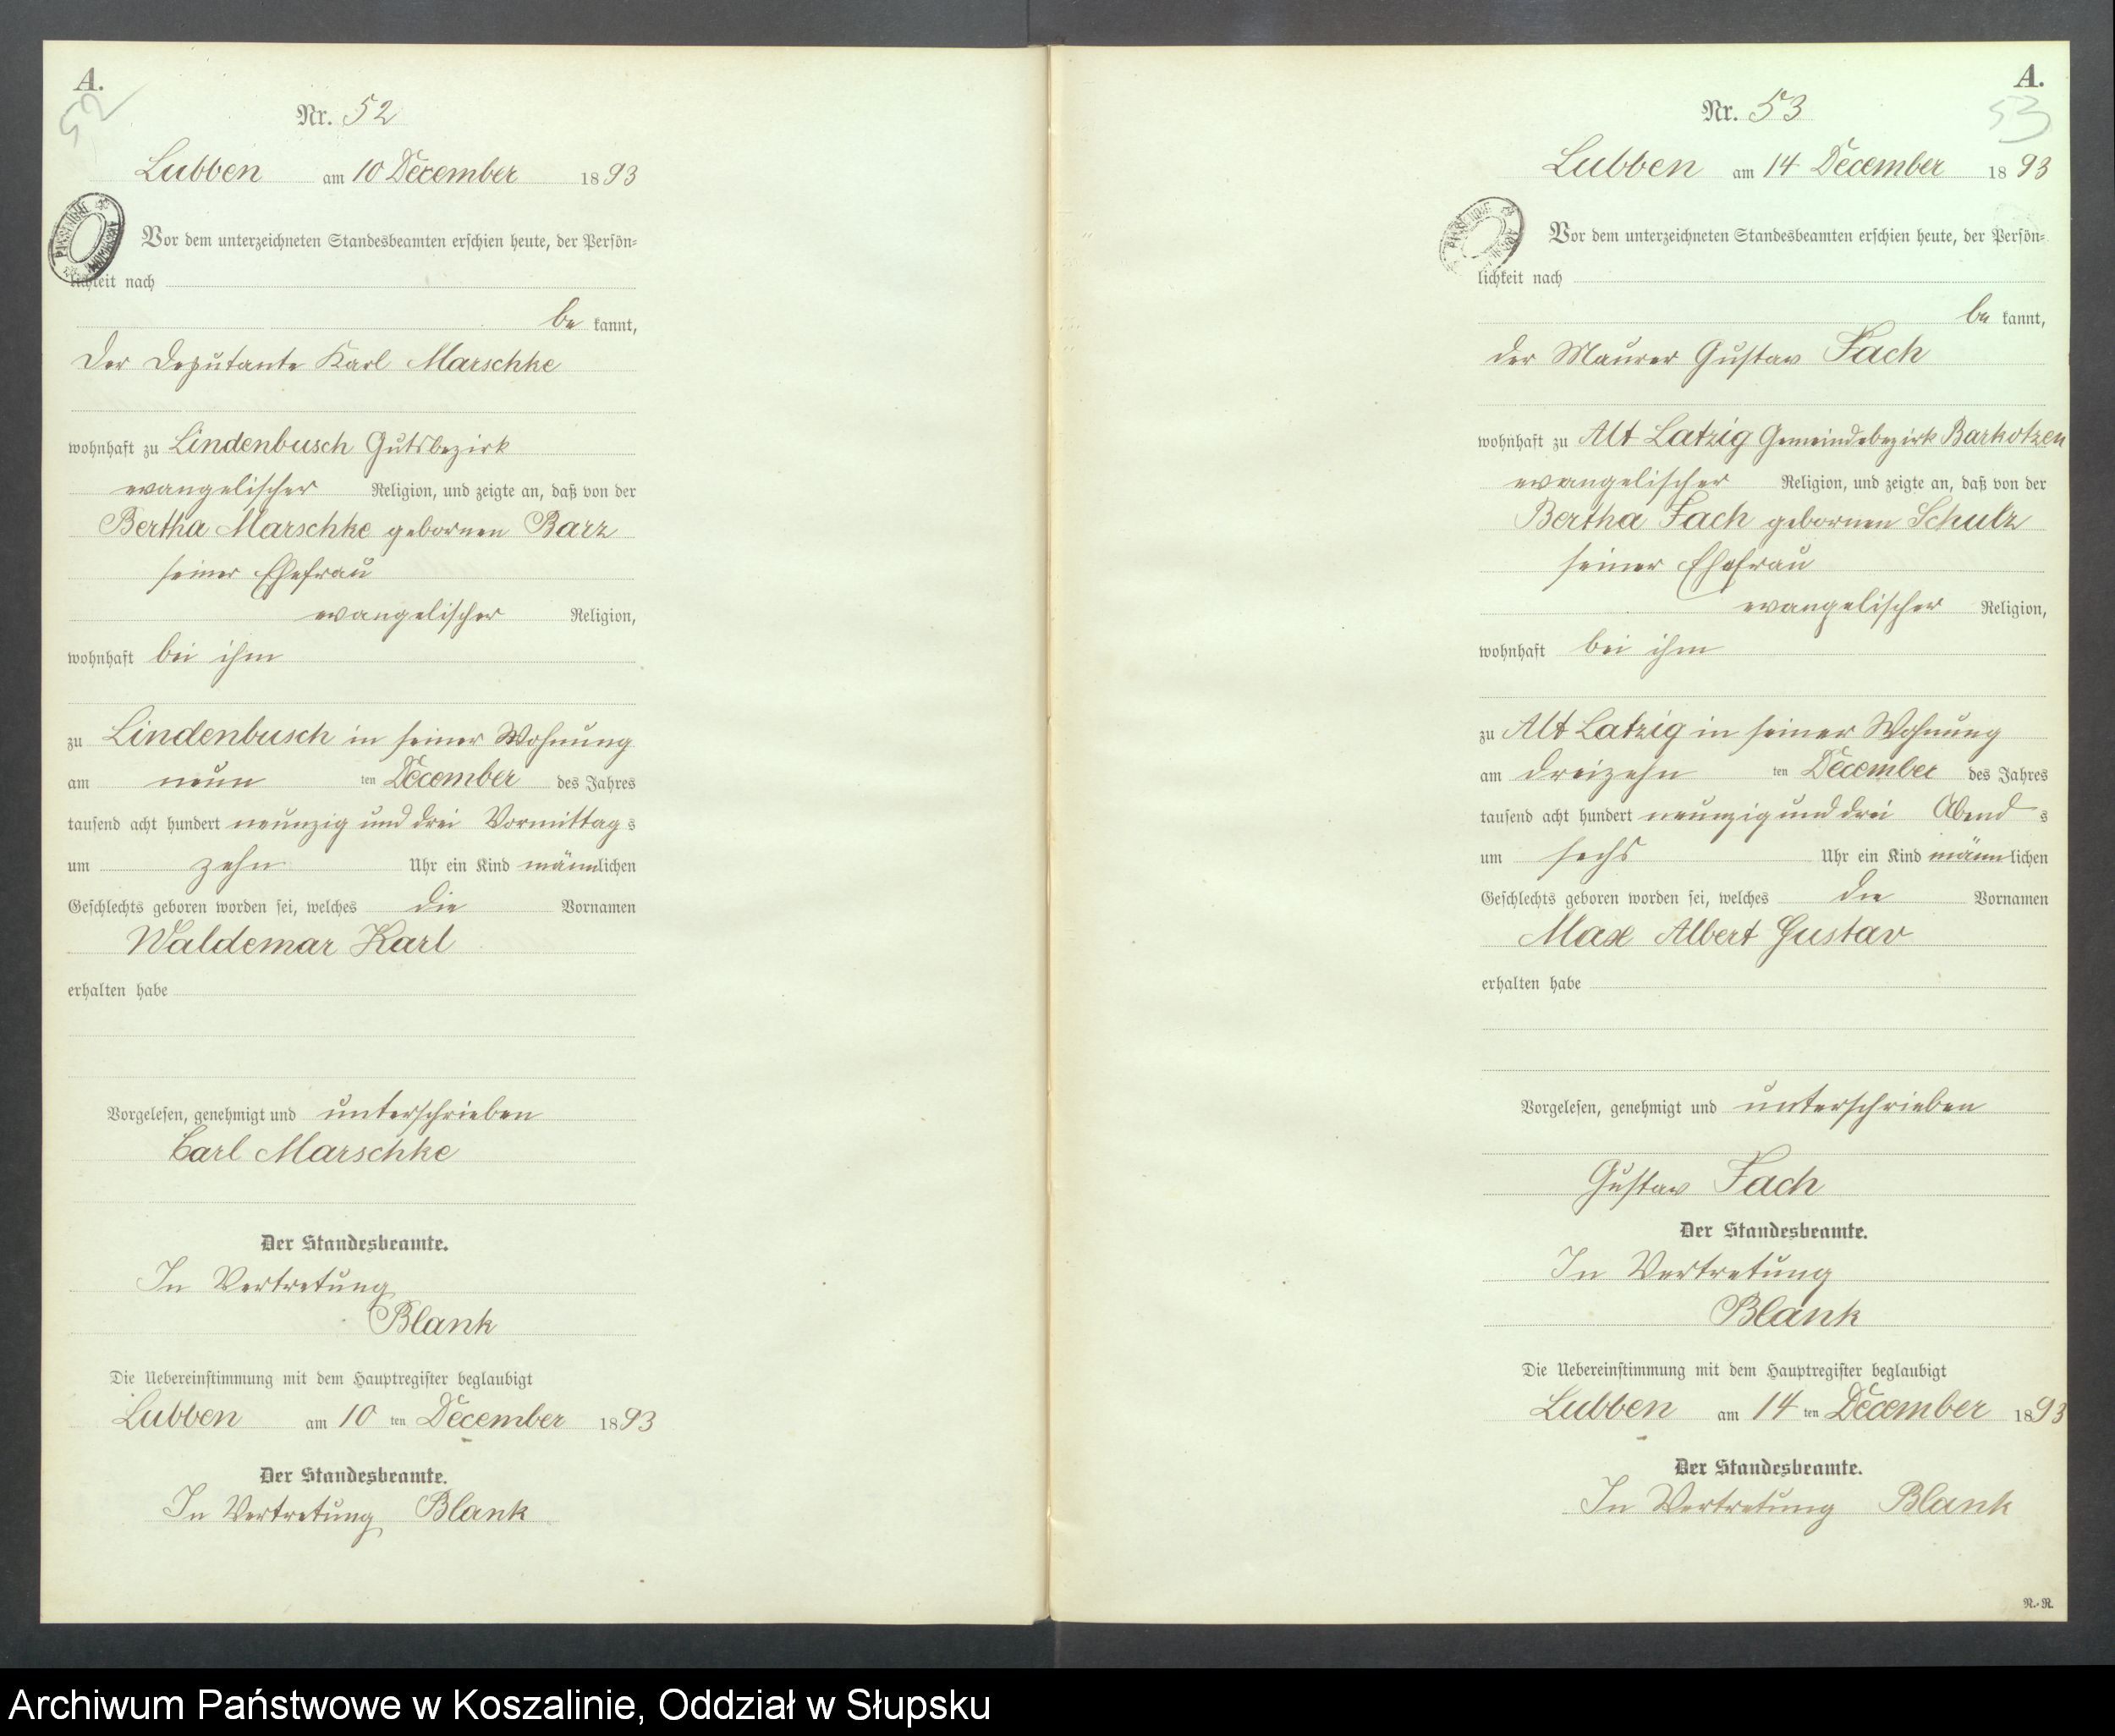 A.
52
Nr. 52
Lubben am 10 December 1893
Vor dem unterzeichneten Standesbeamten erschien heute, der Persön-
lichkeit nach
be kannt,
der Deputante Karl Marschke
wohnhaft zu Lindenbusch Gutsbezirk
evangelischer Religion, und zeigte an, daß von der
Bertha Marschke gebornen Barz
seiner Ehefrau
evangelischer Religion,
wohnhaft bei ihm
zu Lindenbusch in seiner Wohnung
am neun ten December des Jahres
tausend acht hundert neunzig und drei Vormittag s
um zehn Uhr ein Kind männlichen
Geschlechts geboren worden sei, welches die Vornamen
Waldemar Karl
erhalten habe
Vorgelesen, genehmigt und unterschrieben
Carl Marschke
Der Standesbeamte.
In Vertretung
Blank
Die Uebereinstimmung mit dem Hauptregister beglaubigt
Lubben am 10 ten December 1893
Der Standesbeamte.
In Vertretung Blank
A.
53
Nr. 53
Lubben am 14 December 1893
Vor dem unterzeichneten Standesbeamten erschien heute, der Persön-
lichkeit nach
be kannt,
der Maurer Gustav Fach
wohnhaft zu Alt Latzig Gemeindebezirk Barkotzen
evangelischer Religion, und zeigte an, daß von der
Bertha Fach gebornen Schulz
seiner Ehefrau
evangelischer Religion,
wohnhaft bei ihm
zu Alt Latzig in seiner Wohnung
am dreizehn ten December des Jahres
tausend acht hundert neunzig und drei Abend s
um sechs Uhr ein Kind männlichen
Geschlechts geboren worden sei, welches die Vornamen
Max Albert Gustav
erhalten habe
Vorgelesen, genehmigt und unterschrieben
Gustav Fach
Der Standesbeamte.
In Vertretung
Blank
Die Uebereinstimmung mit dem Hauptregister beglaubigt
Lubben am 14 ten December 1893
Der Standesbeamte.
In Vertretung Blank
N.-R.
Archiwum Państwowe w Koszalinie, Oddział w Słupsku